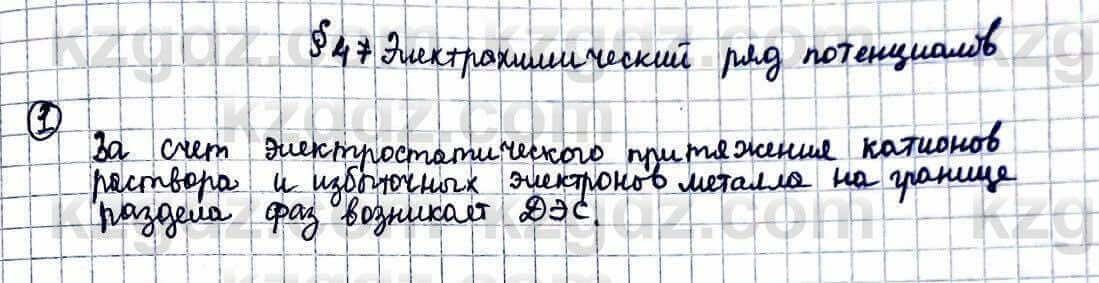 § 47 Электрохимический ряд потенциалов
1
За счет электростатического притяжения катионов
раствора и избыточных электронов металла на границе
раздела фаз возникает ДЭС.